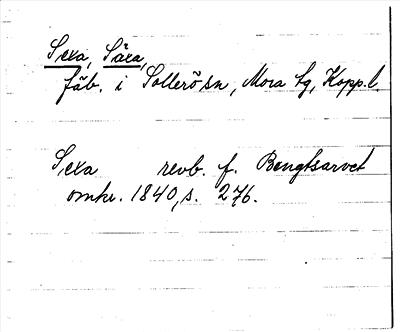 Sexa, Säxa,
fäb. i Sollerö sn, Mora tg, Kopp. l.
Sexa revb. f. Bengtsarvet
omkr. 1840, s. 276.